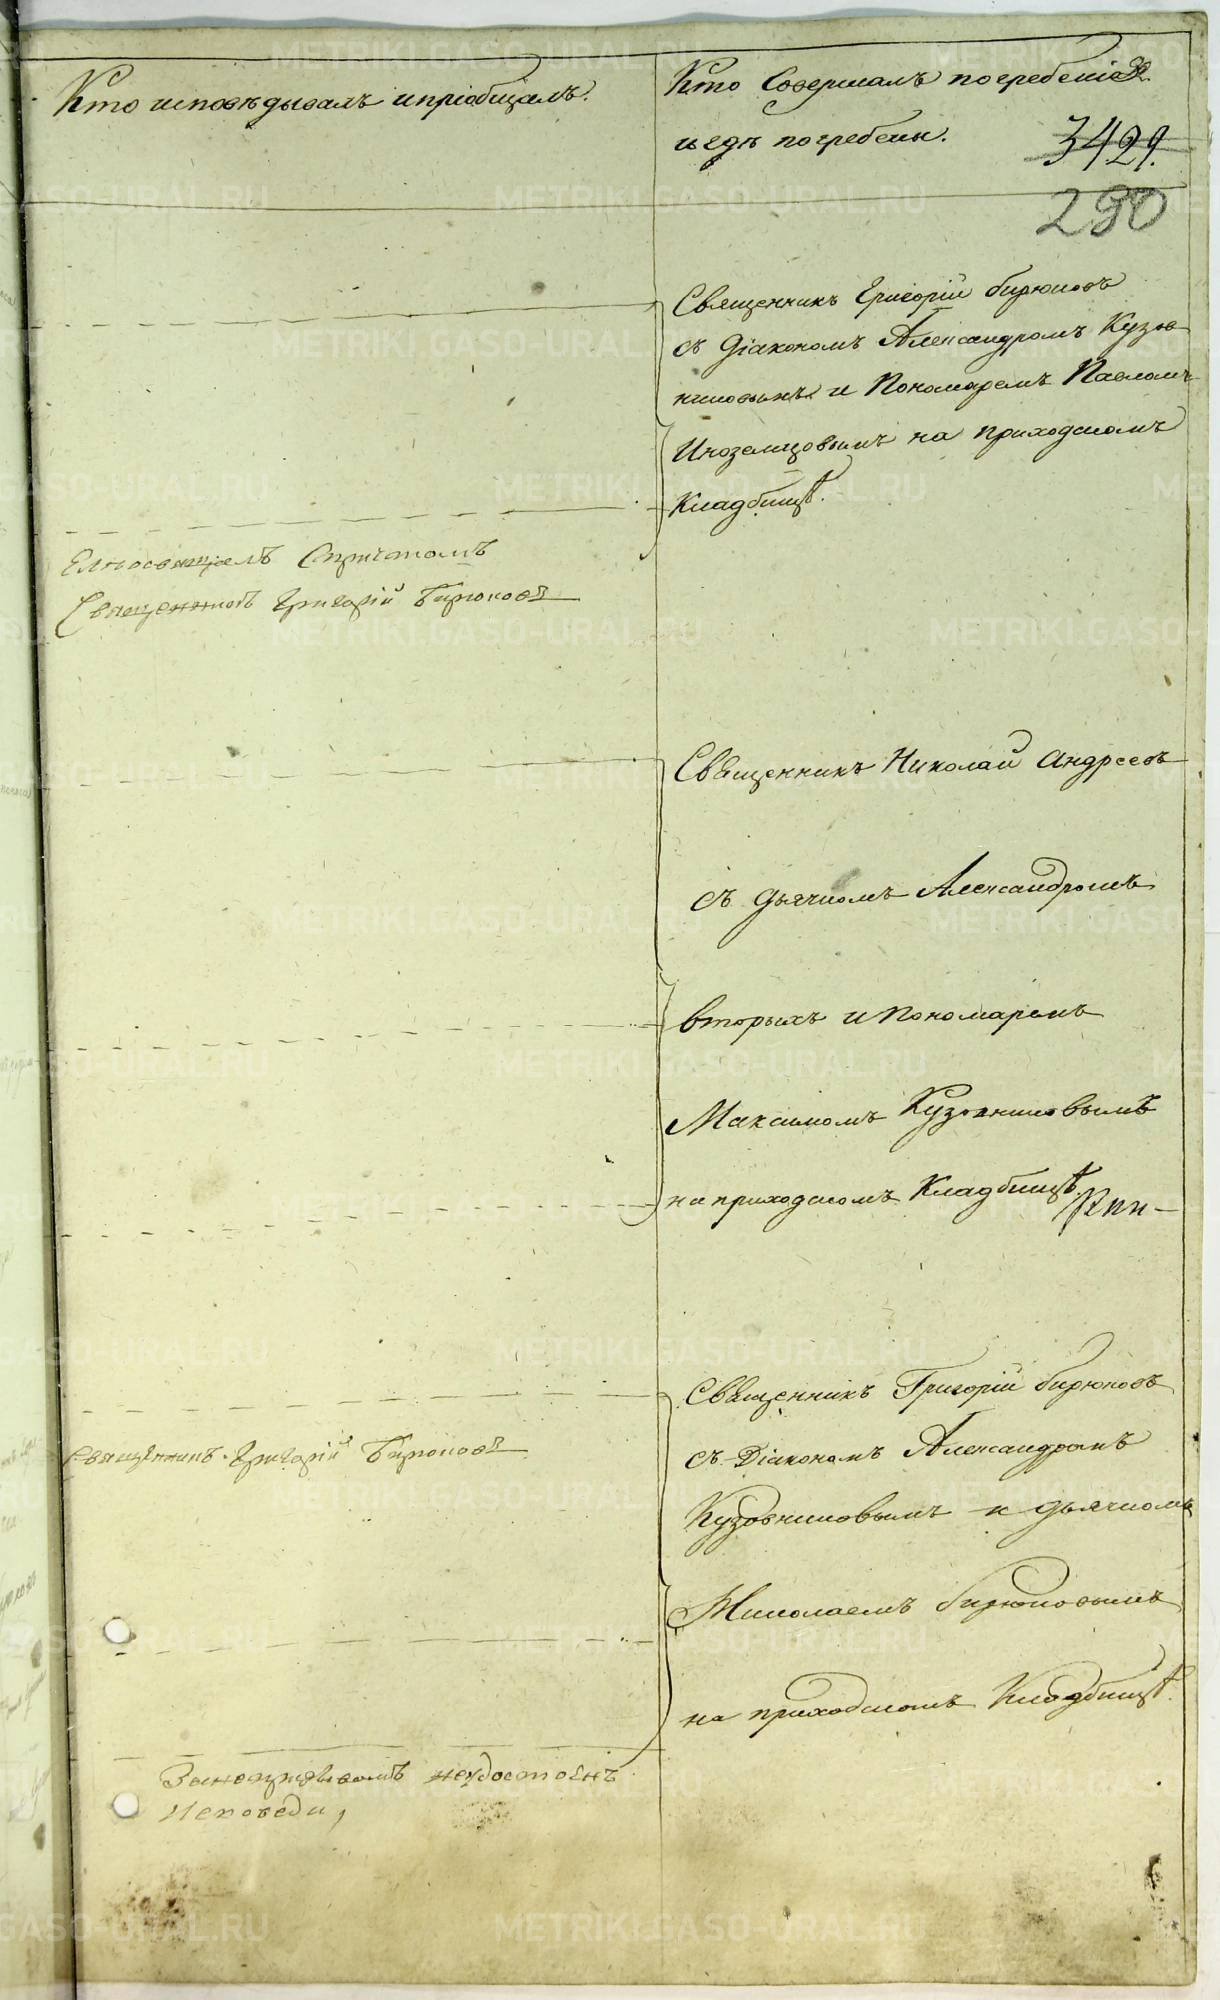 Кто исповѣдывалъ и пріобщалъ.
Кто Совершалъ погребеніе
и гдѣ погребены.
3429.
290
Священникъ Григорій бирюковъ
съ Діакономъ Александромъ Кузов
никовымъ и Пономаремъ Павломъ
Иноземцовымъ на приходскомъ
Кладбищѣ.
Елеосвящалъ Спричтомъ
Священникъ Григорій Бирюковъ
Священникъ Николай Андреевъ
съ дьячкомъ Александромъ
вторыхъ и пономаремъ
Максимомъ Кузовниковымъ
на приходскомъ Кладбищѣ.
Священникъ Григорій бирюковъ
съ Діакономъ Александромъ
Священникъ Григорій Бирюковъ
Кузовниковымъ и дьячкомъ
Николаемъ бирюковымъ
на приходскомъ Кладбищѣ.
неудостоенъ
Исповеди,